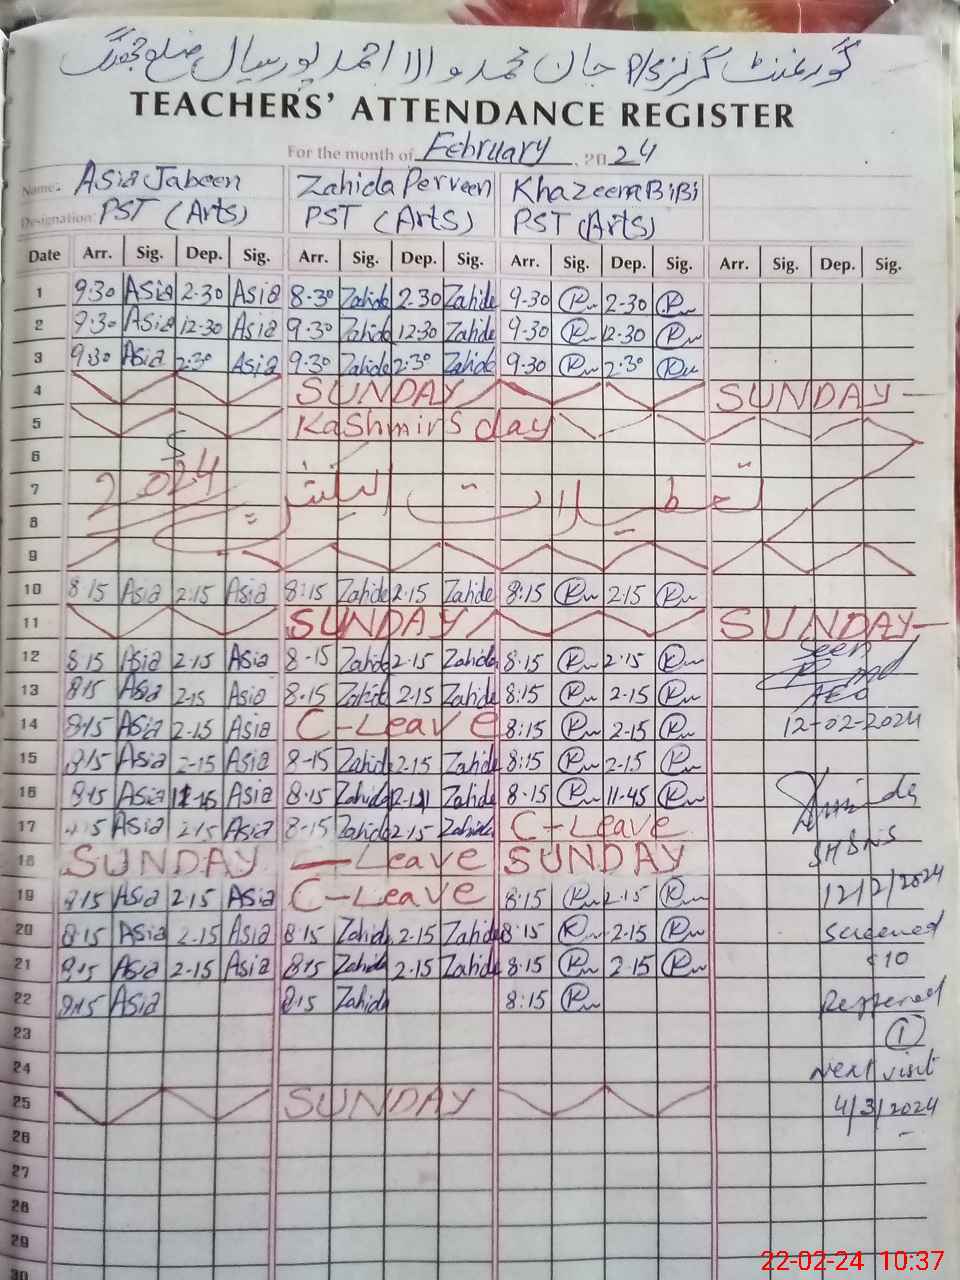 گورنمنٹ گرلز P/S جان محمد والا احمد پور سیال ضلع جھنگ
TEACHERS' ATTENDANCE REGISTER
For the month of February, 2024
Name: Asia Jabeen Zahida Perveen Khazeema BiBi
Designation: PST (Arts) PST (Arts) PST (Arts)
Date Arr. Sig. Dep. Sig. Arr. Sig. Dep. Sig. Arr. Sig. Dep. Sig. Arr. Sig. Dep. Sig.
1 9:30 Asia 2-30 Asia 8-30 Zahida 2-30 Zahida 9-30 2-30
2 9:30 Asia 12-30 Asia 9:30 Zahida 12-30 Zahida 9-30 12-30
3 9:30 Asia 2:30 Asia 9:30 Zahida 2:30 Zahida 9-30 2:30
4 SUNDAY SUNDAY
5 Kashmirs day
6 5
7 2024 تعطیلات الیکشن
8
9
10 8:15 Asia 2:15 Asia 8:15 Zahida 2-15 Zahida 8:15 2:15
11 SUNDAY SUNDAY
12 8:15 Asia 2-15 Asia 8-15 Zahida 2-15 Zahida 8:15 2-15 Seen
13 8:15 Asia 2-15 Asia 8-15 Zahida 2-15 Zahida 8:15 2-15 AEO
14 8:15 Asia 2-15 Asia C-Leave 8:15 2-15 12-02-2024
15 8:15 Asia 2-15 Asia 8-15 Zahida 2-15 Zahida 8:15 2-15
16 8:15 Asia Asia 8-15 Zahida Zahida 8-15 11-45
17 Asia 2:15 Asia 8-15 Zahida 2-15 Zahida C-Leave
18 SUNDAY -Leave SUNDAY SH&NS
19 8:15 Asia 2:15 Asia C-Leave 8:15 2-15 12/2/2024
20 8:15 Asia 2-15 Asia 8:15 Zahida 2-15 Zahida 8:15 2-15 Screened
21 8:15 Asia 2-15 Asia 8:15 Zahida 2-15 Zahida 8-15 2-15 10
22 8:15 Asia 8:15 Zahida 8:15 Refferred
23 1
24 Next visit
25 SUNDAY 4/3/2024
26
27
28
29
30
22-02-24 10:37